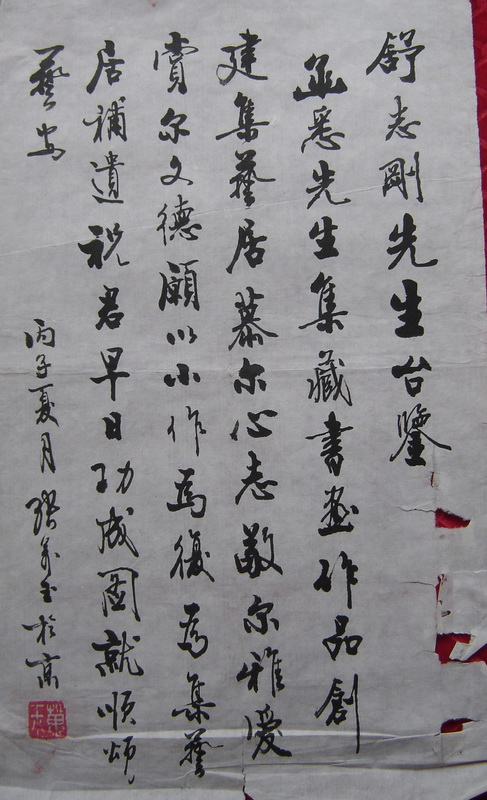 舒志剛先生台鑒
函悉先生集藏書画作品創
建集藝居慕尔心志敬尔雅愛
賞尔文德願以小作為復為集藝
居補遺祝君早日功成圖就順頌
藝安
丙子夏月於京